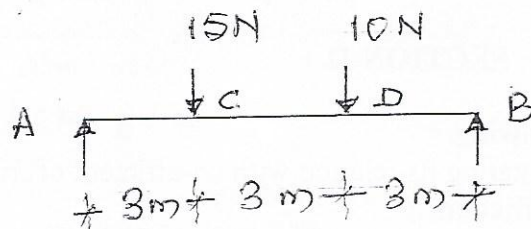 15N 10N
A C D B
3m 3m 3m